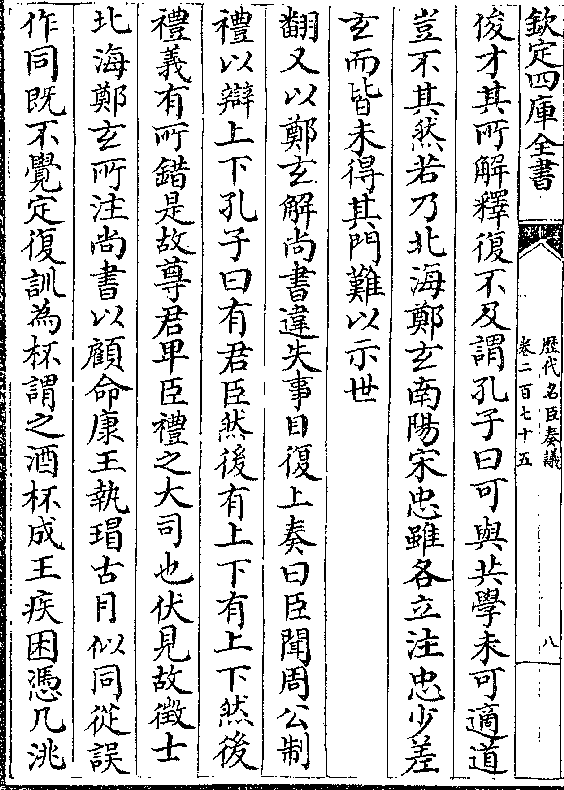 欽定四庫全書
歷代名臣奏議
卷二百七十五
八
後才其所解釋復不及謂孔子曰可與共學未可適道
豈不其然若乃北海鄭玄南陽宋忠雖各立注忠少差
玄而皆未得其門難以示世
翻又以鄭玄解尚書違失事目復上奏曰臣聞周公制
禮以辯上下孔子曰有君臣然後有上下有上下然後
禮義有所錯是故尊君卑臣禮之大司也伏見故徵士
北海鄭玄所注尚書以顧命康王執瑁古冃似同從誤
作同既不覺定復訓為杯謂之酒杯成王疾困憑几洮